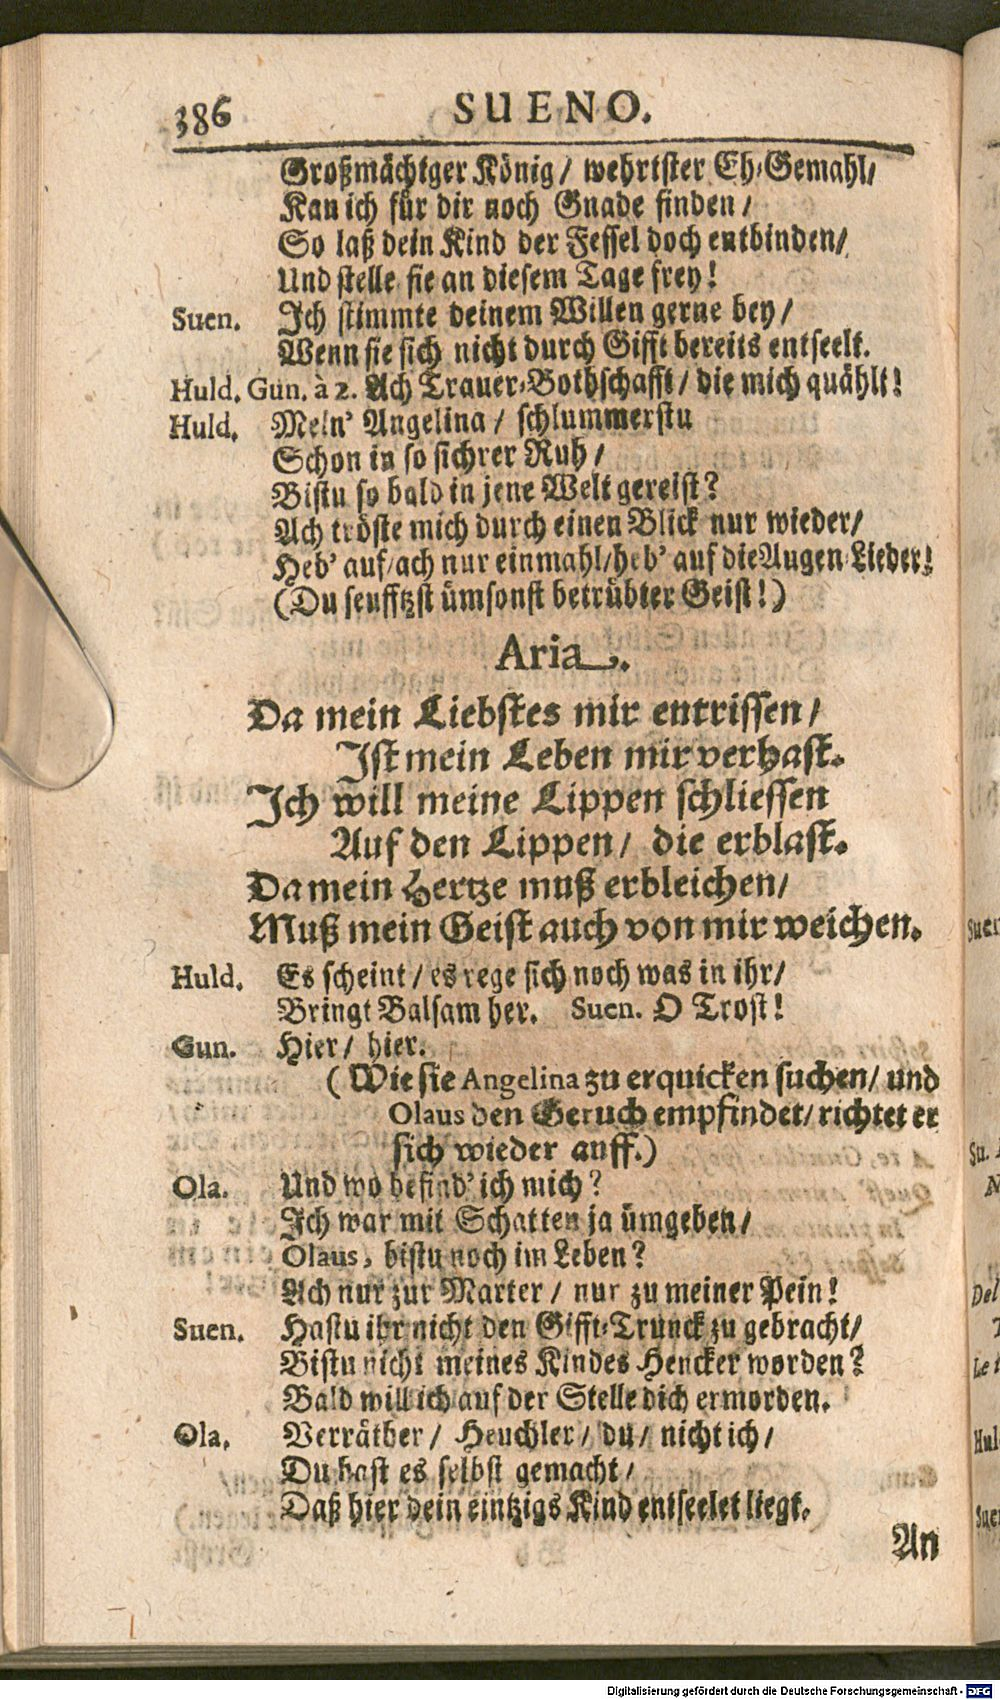 386 SUENO.
Großmächtger König / wehrtster Eh-Gemahl/
Kan ich für dir noch Gnade finden /
So laß dein Kind der Fessel doch entbinden/
Und stelle sie an diesem Tage frey!
Suen. Ich stimmte deinem Willen gerne bey /
Wenn sie sich nicht durch Gifft bereits entseelt.
Huld. Gun. à 2. Ach Trauer-Bothschafft / die mich quählt!
Huld. Mein' Angelina / schlummerstu
Schon in so sichrer Ruh /
Bistu so bald in jene Welt gereist?
Ach tröste mich durch einen Blick nur wieder/
Heb' auf/ach nur einmahl/heb' auf die Augen-Lieder!
(Du seufftzst ümsonst betrübter Geist!)
Aria.
Da mein Liebstes mir entrissen /
Ist mein Leben mir verhast.
Ich will meine Lippen schliessen
Auf den Lippen / die erblast.
Da mein Hertze muß erbleichen/
Muß mein Geist auch von mir weichen.
Huld. Es scheint / es rege sich noch was in ihr/
Bringt Balsam her. Suen. O Trost!
Gun. Hier / hier.
(Wie sie Angelina zu erquicken suchen/ und
Olaus den Geruch empfindet/ richtet er
sich wieder auff.)
Ola. Und wo befind' ich mich?
Ich war mit Schatten ja ümgeben/
Olaus, bistu noch im Leben?
Ach nur zur Marter / nur zu meiner Pein!
Suen. Hastu ihr nicht den Gifft-Trunck zu gebracht/
Bistu nicht meines Kindes Hencker worden?
Bald will ich auf der Stelle dich ermorden.
Ola. Verräther / Heuchler / du / nicht ich /
Du hast es selbst gemacht /
Daß hier dein eintzigs Kind entseelet liegt.
An
Digitalisierung gefördert durch die Deutsche Forschungsgemeinschaft - DFG